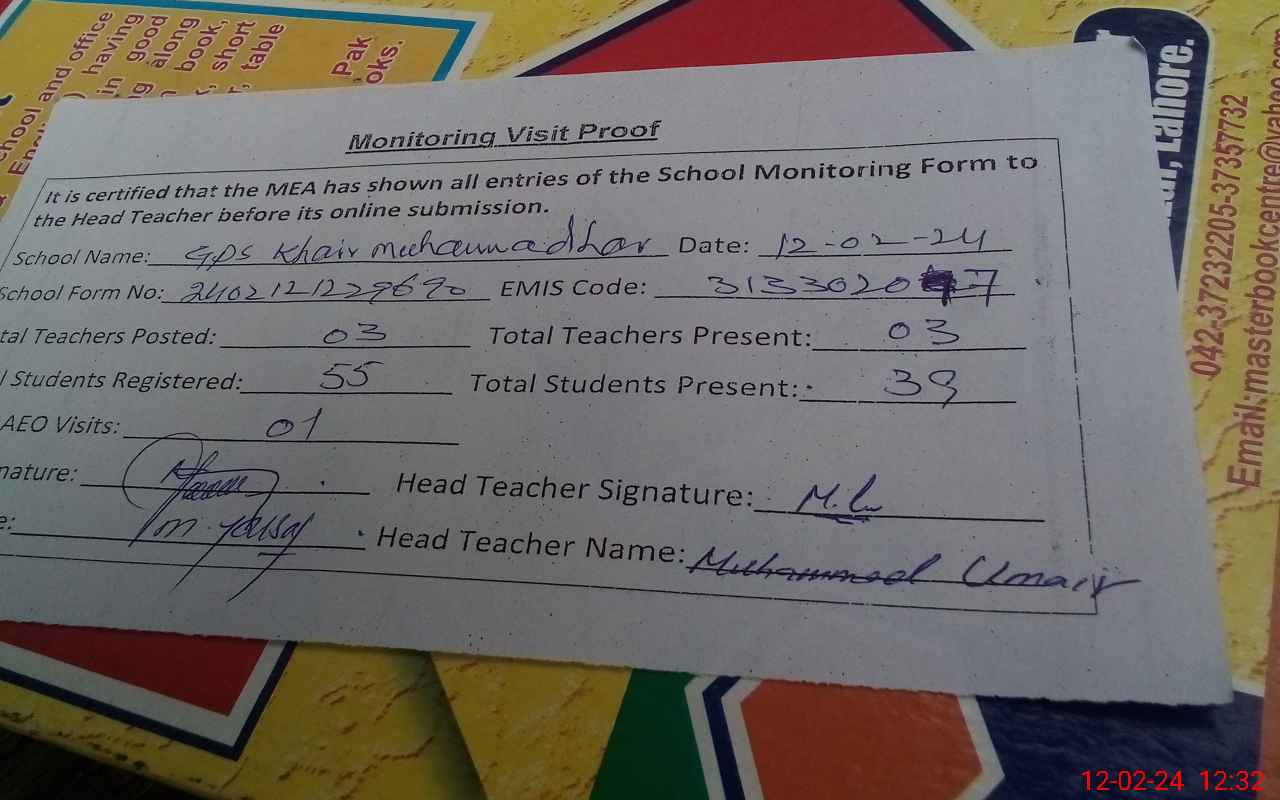 chool and office
having
in good
ng along
book,
short
table
Pak
oks.
Monitoring Visit Proof
It is certified that the MEA has shown all entries of the School Monitoring Form to
the Head Teacher before its online submission.
School Name: GPS Khair Muhammad Jhar Date: 12-02-24
School Form No: 240212122969 EMIS Code: 31330207
tal Teachers Posted: 03 Total Teachers Present: 03
l Students Registered: 55 Total Students Present: 39
AEO Visits: 01
nature: Head Teacher Signature: M.U
e: M. Yousaf Head Teacher Name: Muhammad Umair
, Lahore.
042-37232205-37357732
Email:masterbookcentre@yahoo.com
12-02-24 12:32